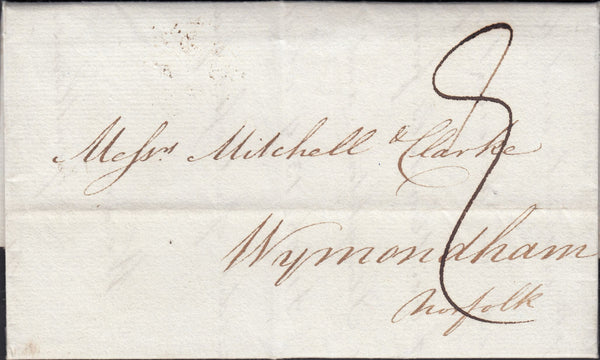 8
Messrs Mitchell & Clarke
Wymondham
Norfolk